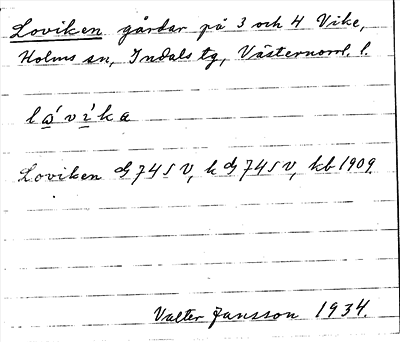 Loviken gårdar på 3 och 4 Vike,
Holms sn, Indals tg, Västernorrl. l.
lo̲´vi̲`ka
Loviken 74 S V, k 74 S V, kb 1909.
Valter Jansson 1934.